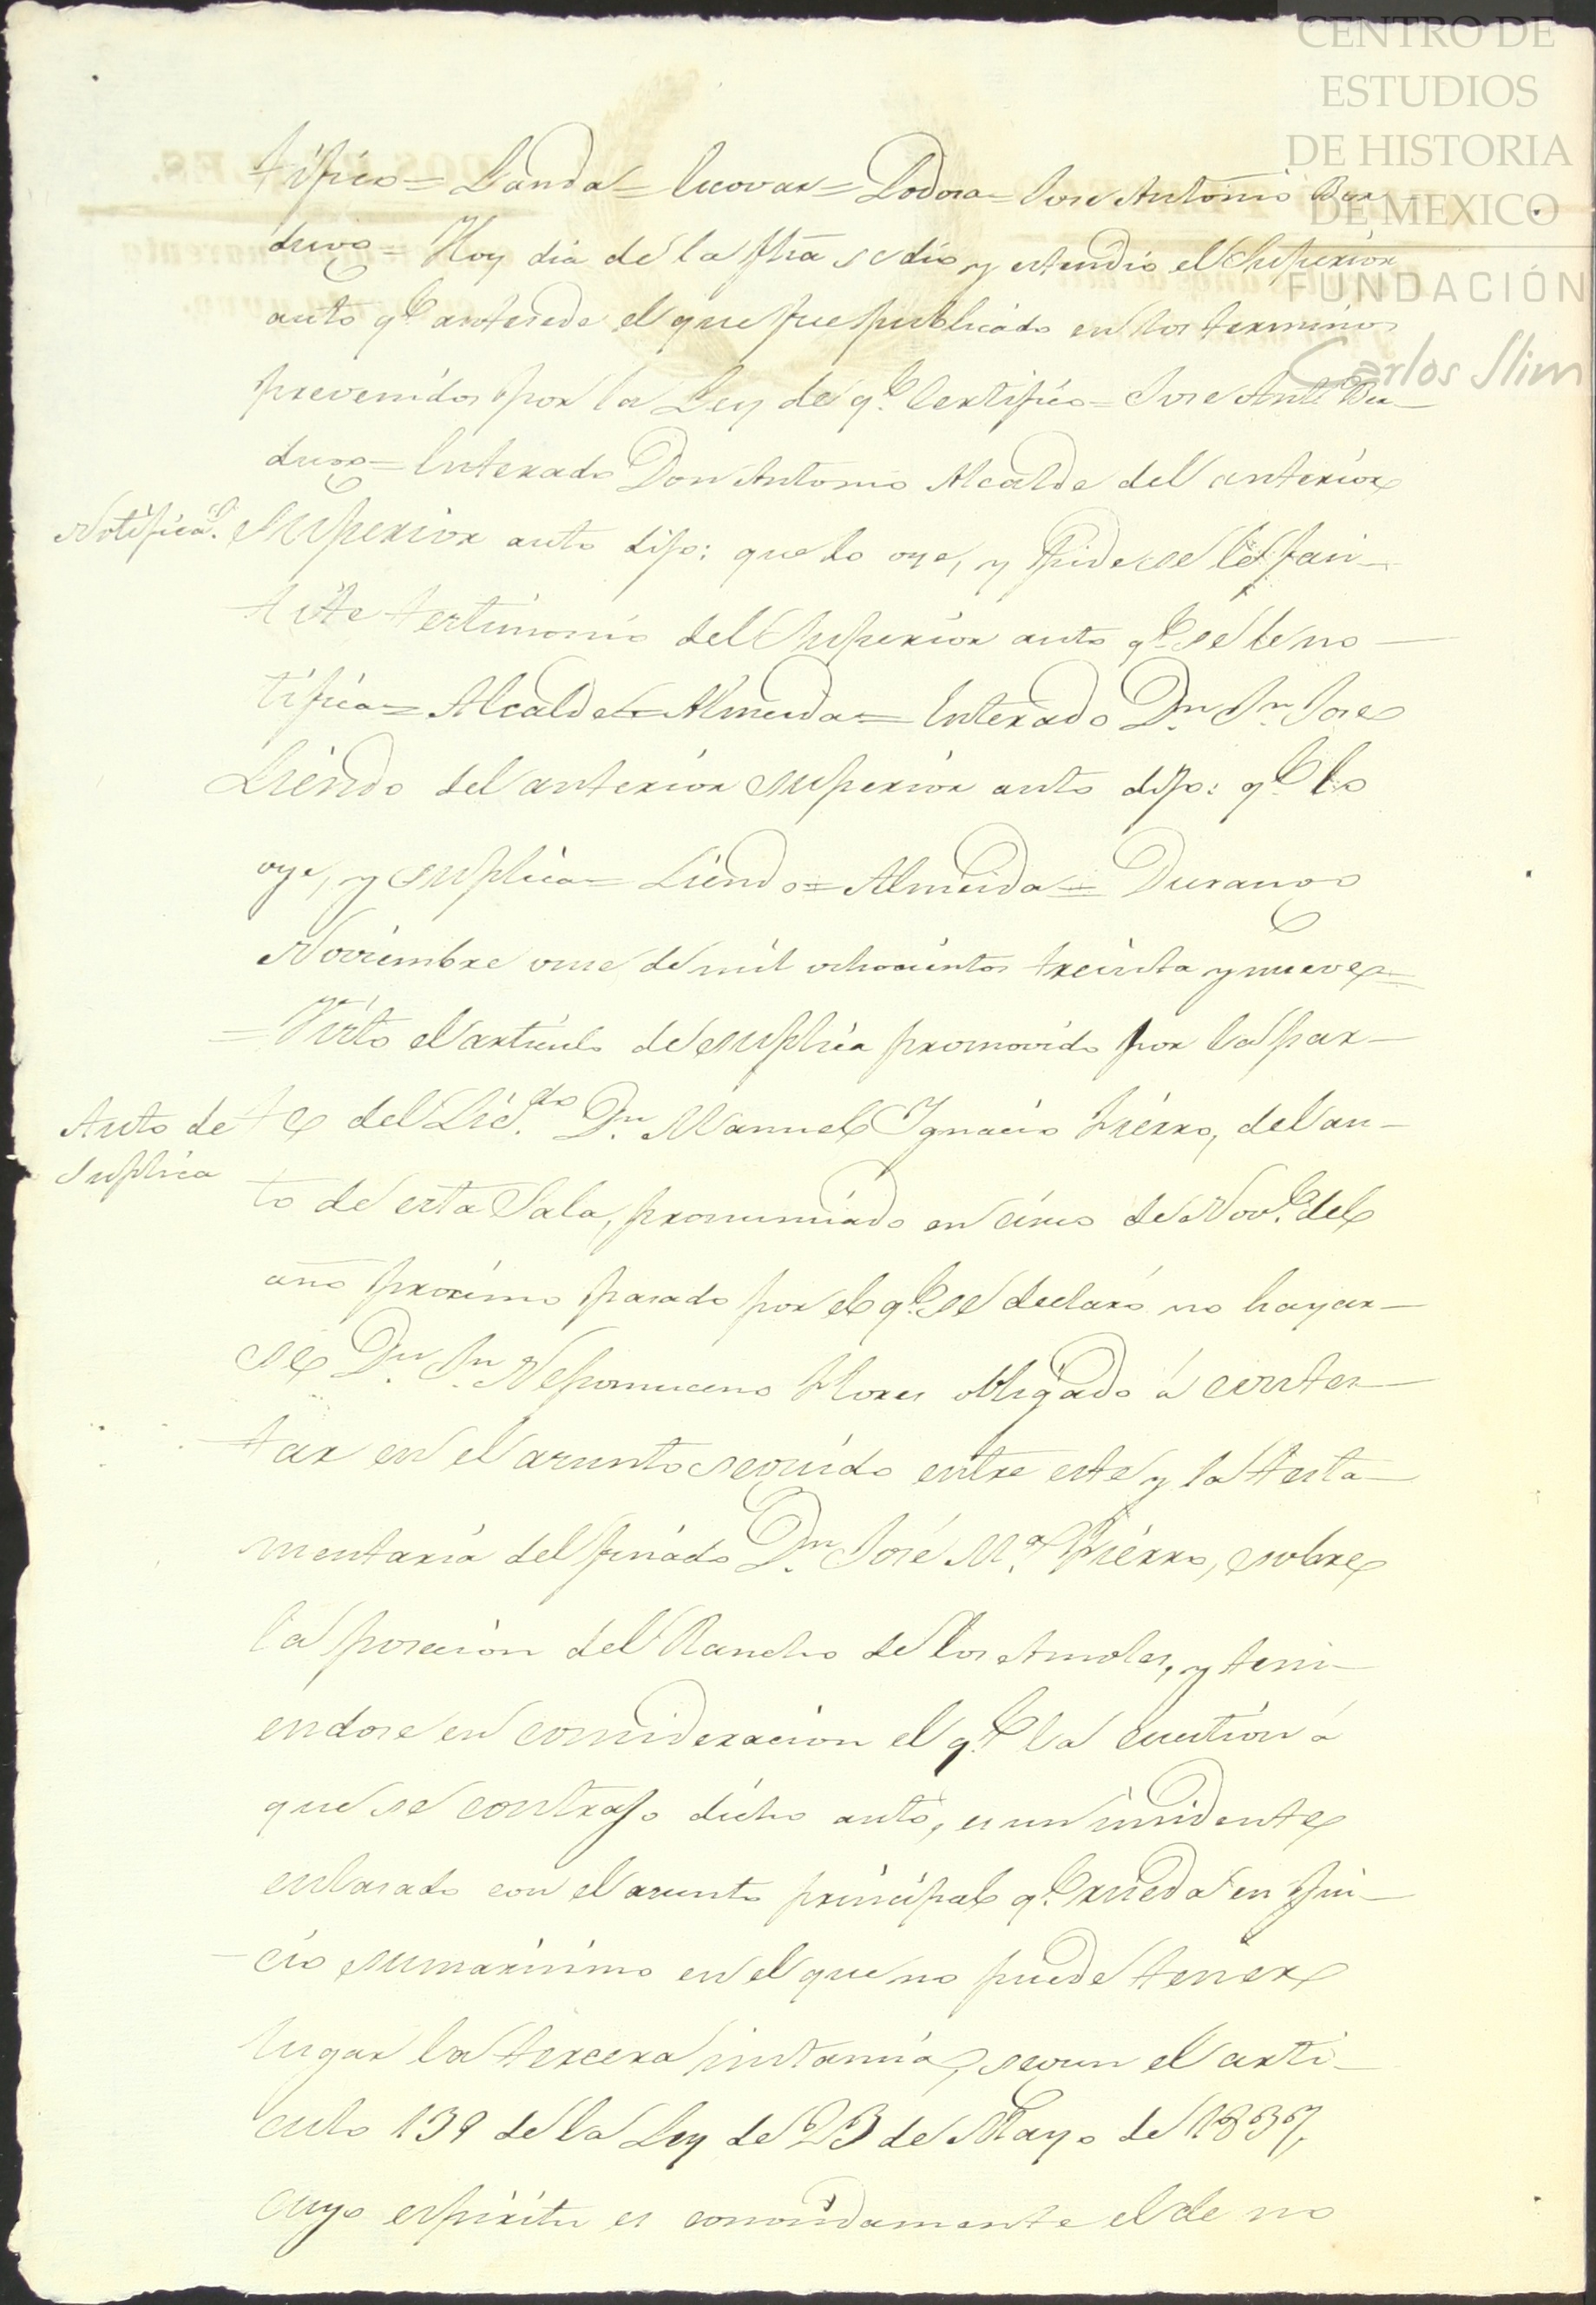 CENTRO DE
ESTUDIOS
DE HISTORIA
DE MEXICO
FUNDACIÓN
Carlos Slim
tifico = Landa = Escovar = Rodora = Jose Antonio Ber
dugo = Hoy dia de la fha se dio y estendio el Superior
auto q.e antesede el que fue publicado en los terminos
prevenidos por la Ley de q.e Certifico = Jose Ant.o Ber—
dugo = Enterado Don Antonio Alcalde del anterior
Notificac.n Superior auto dijo: que lo oye, y pide se le fasi—
lite testimonio del Superior auto q.e se le no—
tifica = Alcalde = Almeida = Enterado D.n J.n Jose
Liendo del anterior Superior auto dijo: q.e lo
oye, y suplica = Liendo = Almeida = Durango
Noviembre once de mil ochocientos treinta y nueve =
= Visto el articulo de suplica promovido por la par—
Auto de
Suplica
te del Lic.do D.n Manuel Ygnacio Fierro, del au—
to de esta Sala, pronunciado en cinco de Nov.e del
año proximo pasado por el q.e se declaró no hayar—
se D.n J.n Nepomuceno Flores obligado á contes—
tar en el asunto seguido entre este y la testa—
mentaria del finado D.n José M.a Fierro, sobre
la posecion del Rancho de los Amoles, y teni—
endose en consideracion el q.e la cuestion á
que se contrajo dicho auto, es un insidente
enlasado con el asunto principal q.e rueda en jui—
cio sumarisimo en el que no puede tener
lugar la tercera instancia, segun el arti—
culo 139 de la Ley de 23 de Mayo de 1837,
cuyo espiritu es conosidamente el de no